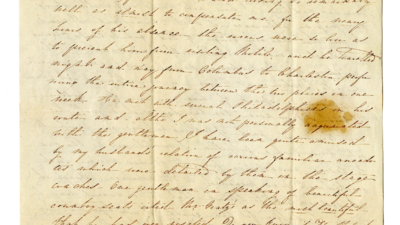 well as almost to compensate me for the many
hours of his absence. the waters were so low as
to prevent him from visiting Mobile, and he travelled
night and day from Columbus to Charleston perfor
ming the entire journey between the two places in one
week. He met with several Philadelphians on his
route and altho I was not personally acquainted
with the gentlemen I have been quite amused
by my husbands relation of various familiar anecdo
tes which were debated by them in the stage
coaches. One gentleman on speaking of beautiful
country seats cited the Gratz' as the most beautiful
that he had ever